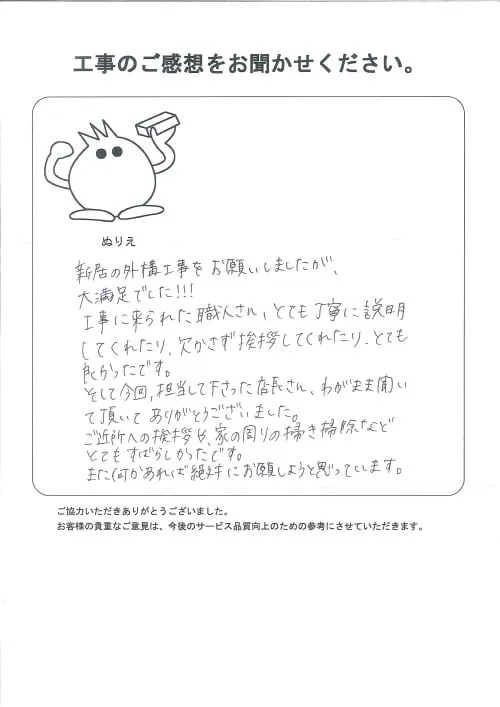 工事のご感想をお聞かせください。
ぬりえ
新居の外構工事をお願いしましたが、
大満足でした!!!
工事に来られた職人さん、とても丁寧に説明
してくれたり、欠かさず挨拶してくれたり、とても
良かったです。
そして今回、担当して下さった店長さん、わがまま聞い
て頂いてありがとうございました。
ご近所への挨拶や、家の周りの掃き掃除など
とてもすばらしかったです。
また何かあれば絶対にお願いしようと思っています。
ご協力いただきありがとうございました。
お客様の貴重なご意見は、今後のサービス品質向上のための参考にさせていただきます。